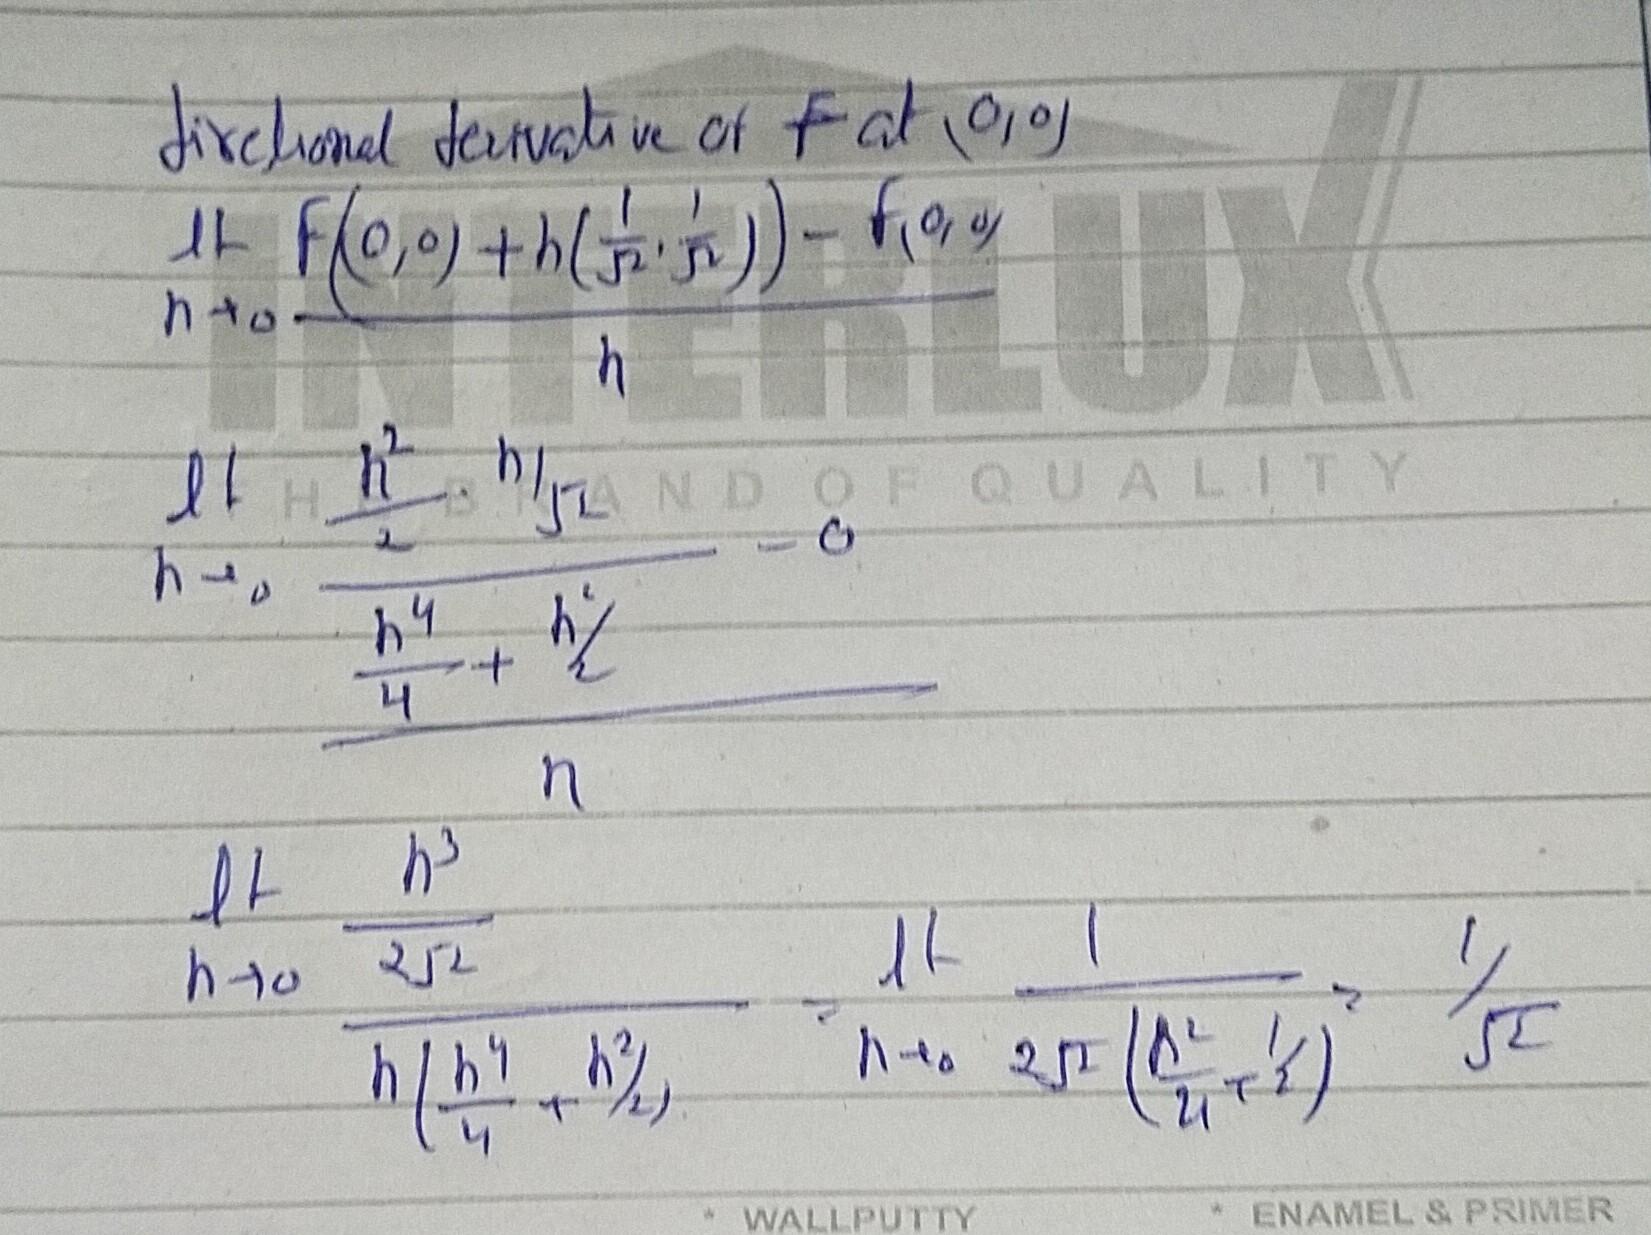 directional derivative of f at (0,0)
lt h→0 [f((0,0) + h(1/√2, 1/√2)) - f(0,0)] / h
lt h→0 [(h²/2 · h/√2) / (h⁴/4 + h²/2) - 0] / h
lt h→0 (h³/2√2) / (h(h⁴/4 + h²/2)) = lt h→0 1 / (2√2 (h²/4 + 1/2)) = 1/√2
INTERLUX
THE BRAND OF QUALITY
* WALLPUTTY * ENAMEL & PRIMER